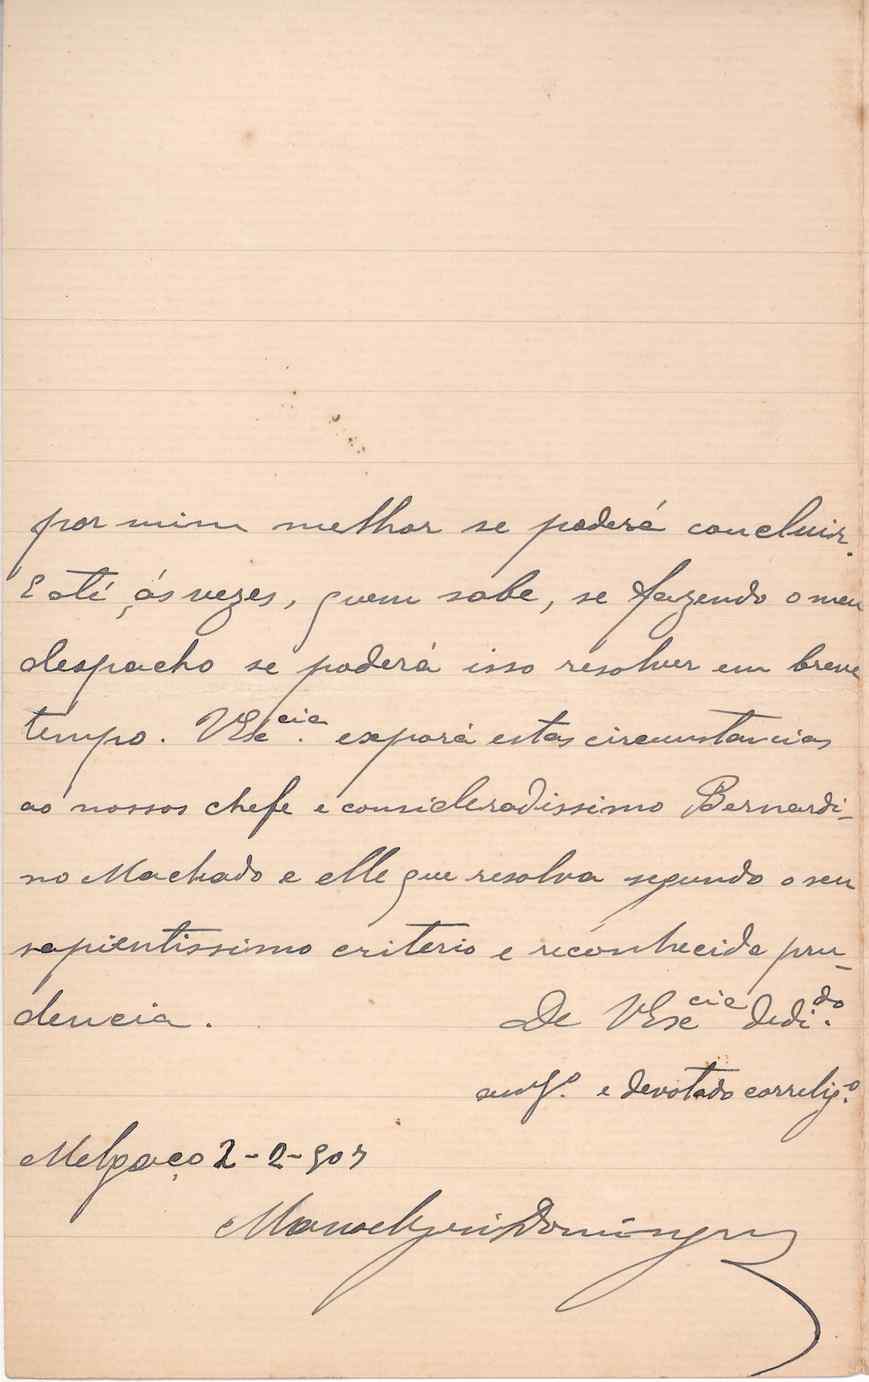 por mim melhor se poderá concluir.
E até ás vezes, quem sabe, se fazendo o meu
despacho se poderá isso resolver em breve
tempo. VExcia. exporá estas circunstancias
ao nossos chefe e consideradissimo Bernardi-
no Machado e elle que resolva segundo o seu
sapientissimo criterio e reconhecida pru-
dencia. De VExcia dedi.do
amg.º e devotado correlig.º
Melgaço 2-2-907
Manoel José Domingues